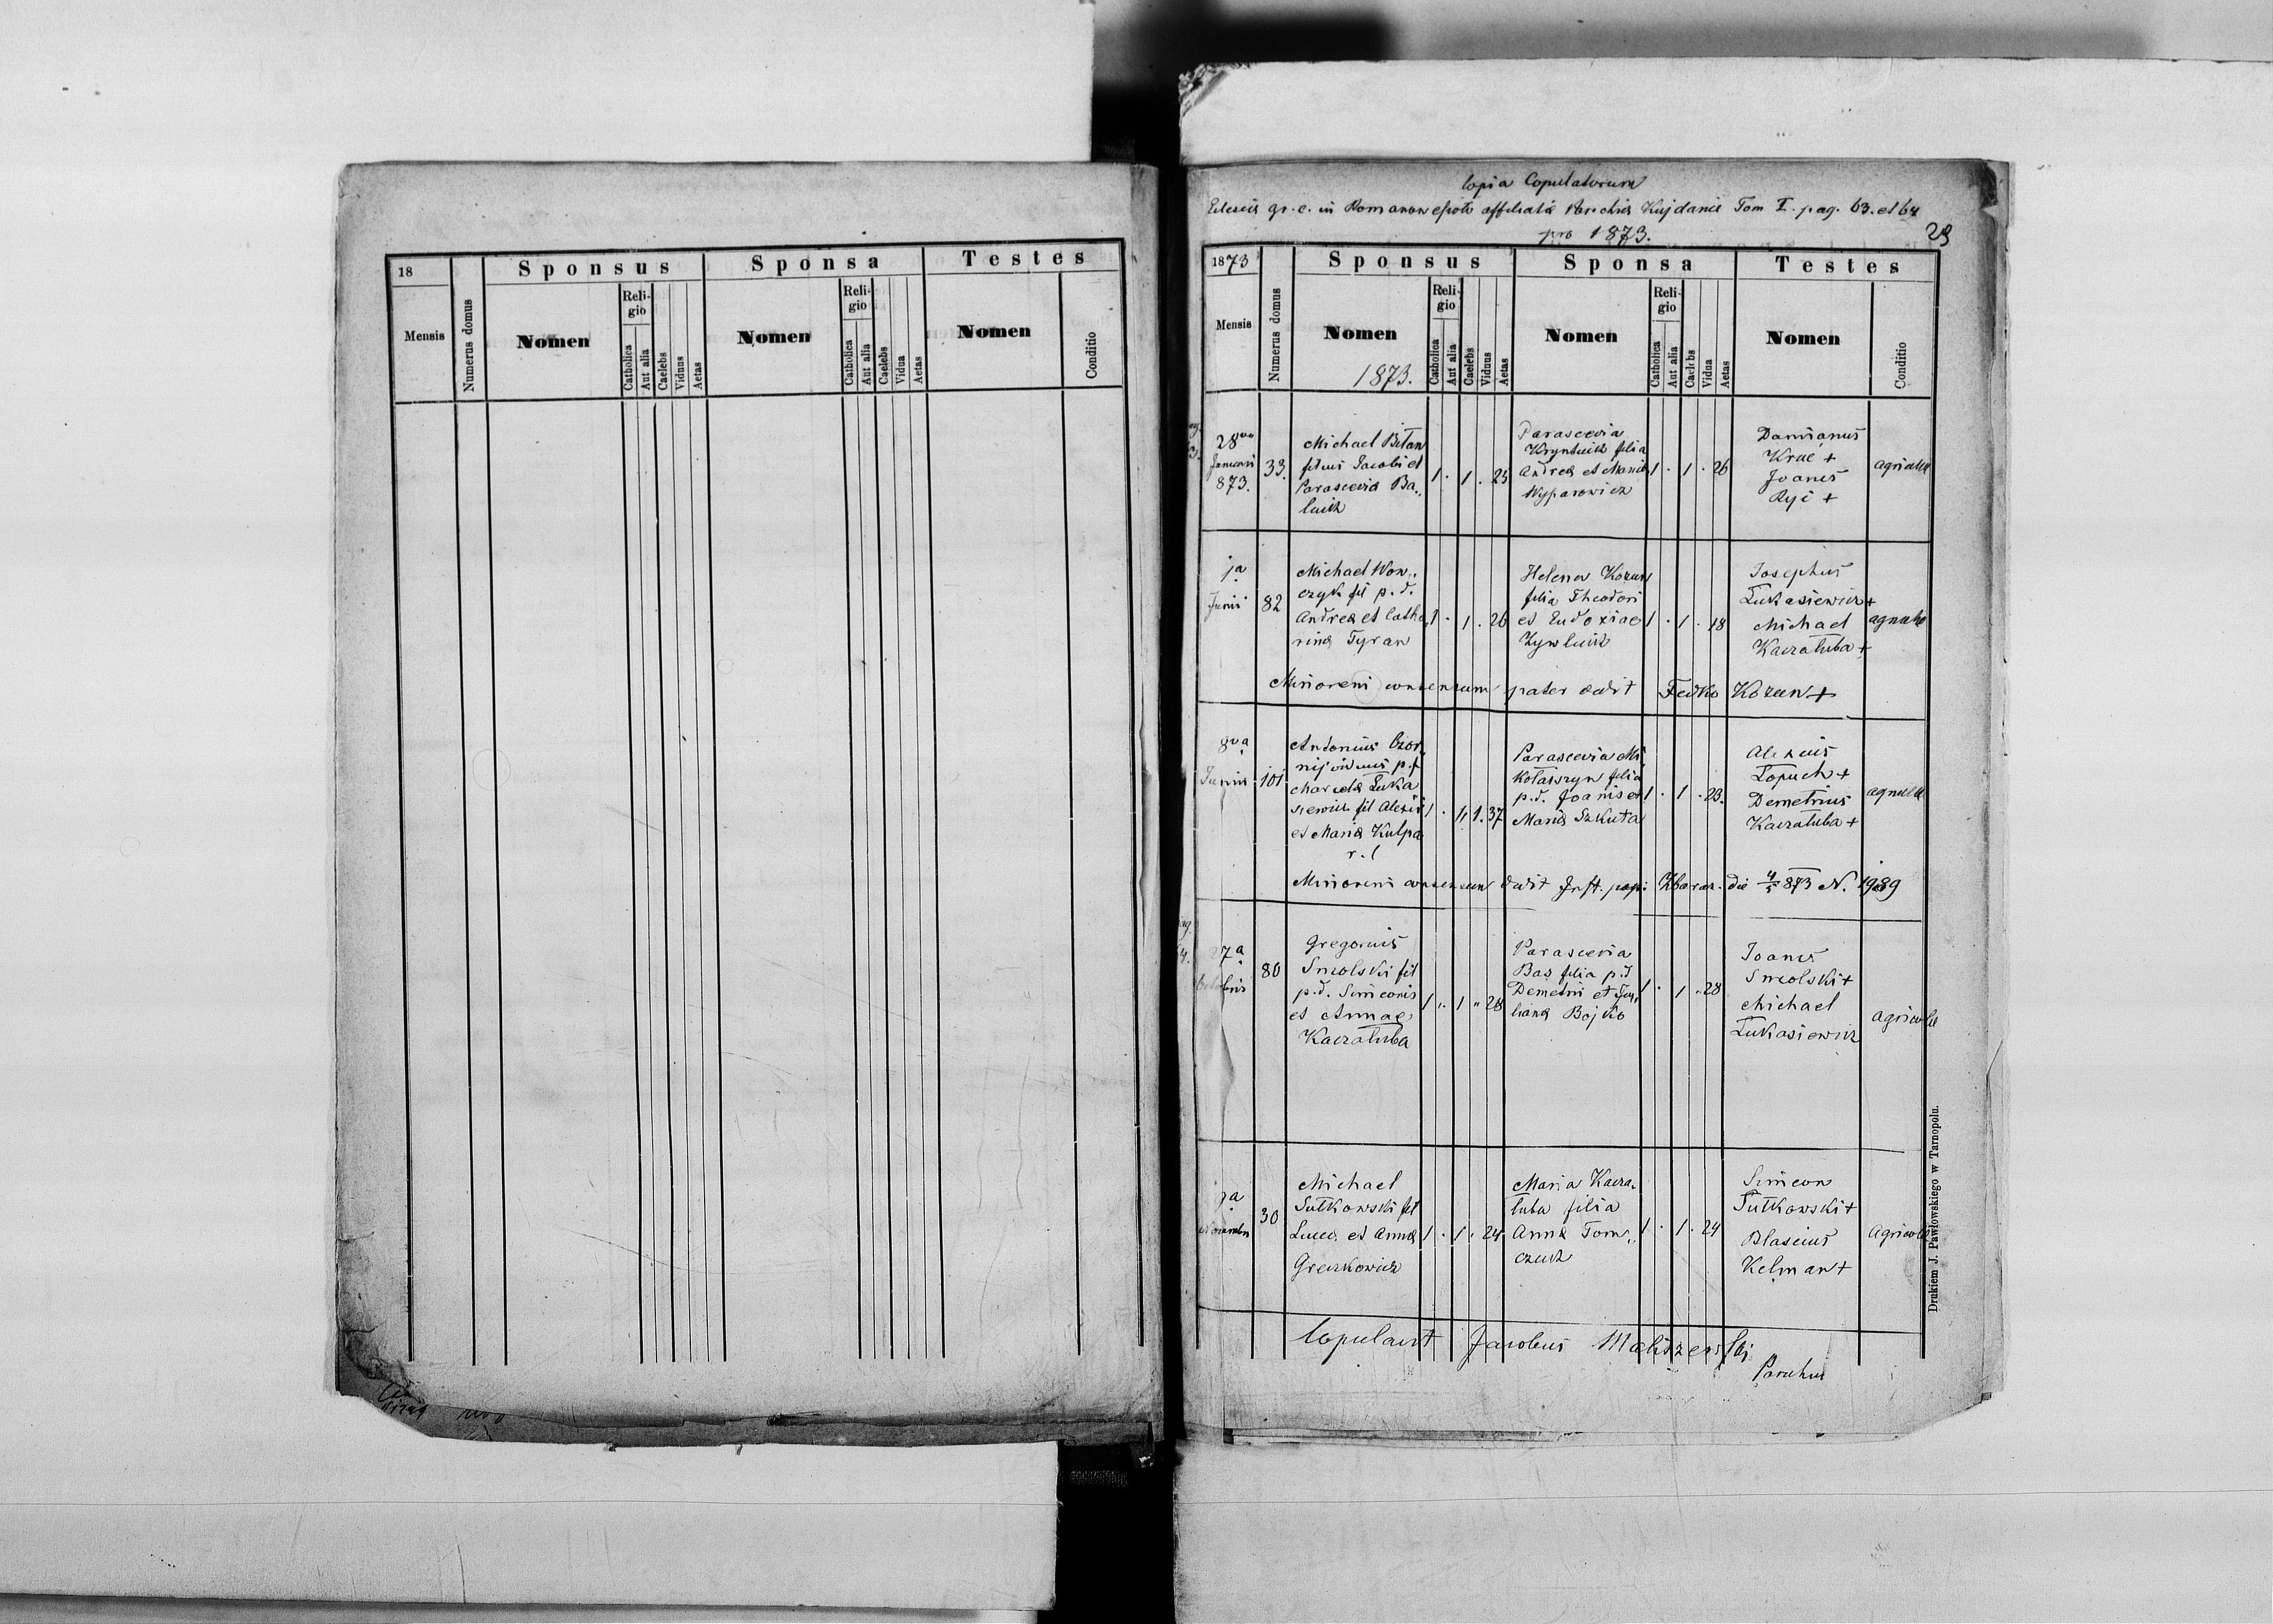 18
Sponsus
Sponsa
Testes
Mensis
Numerus domus
Nomen
Religio
Catholica
Aut alia
Caelebs
Viduus
Aetas
Nomen
Religio
Catholica
Aut alia
Caelebs
Vidua
Aetas
Nomen
Conditio
Copia Copulatorum
gr. c. in affiliata Kujdance Tom I. pag. 63. et 64
pro 1873.
29
1873
Sponsus
Sponsa
Testes
Mensis
Numerus domus
Nomen
1873.
Religio
Catholica
Aut alia
Caelebs
Viduus
Aetas
Nomen
Religio
Catholica
Aut alia
Caelebs
Vidua
Aetas
Nomen
Conditio
28
Januari
873.
33.
Michael Bitan
filius Jacobi et
Parascevia Ba„
luik
1 . 1 . 25
Parascevia
filia
Andrea et Maria
Wyparowicz
1 . 1 . 26
Damianus
Krac +
Joanes
Ryi +
agricolae
1a
Junii
82
Michael Won„
czyk fil p. d.
Andrea et Catha„
rina Tyran
1 . 1 . 26
Helena Kozun
filia Theodori
et Eudoxiae
1 . 1 . 18
Josephus
Łukasiewicz +
Michael
Kaczałuba +
Minoreni consensum pater dedit Fedko Kozun +
8va
Junii
101
Antonius Czor„
nij viduus p. f
Łuka
siewicz fil Alexii
et Maria Kulpa
r. l
1 . 1. 37
Parascevia Mi„
kołaszyn filia
p. d. Joanis et
Maria Szkuta
1 . 1 . 23.
Alexius
Łopuch +
Demetrius
Kaczałuba +
Minoreni consensum dedit Zbaraz. die 4/5 873 N. 1989
27a
80
Gregorius
Smolski fil
p. d. Simeonis
et Annae
Kaczałuba
1 . 1 „ 28
Parascevia
Bas filia p. d
Demetri et Ju„
liana Bojko
1 . 1 . 28
Joanes
Smolski +
Michael
Łukasiewicz
agricolae
Novembris
30
Michael
Sułkowski fil
Luca et Anna
Greczkowicz
1 . 1 . 24
Maria Kacza„
łuba filia
Anna Tom„
czuk
1 . 1 . 24
Simeon
Sułkowski +
Blasius
Kelman +
Agricolae
Copulavit Jacobus Maliszewski
Parochus
Drukiem J. Pawłowskiego w Tarnopolu.